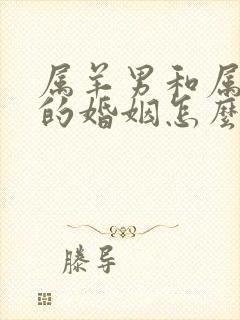 属羊男和属
的婚姻怎麽
滕导